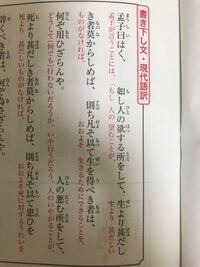 書き下し文・現代語訳
孟子曰はく、如し人の欲する所をして、生より甚だし
孟子が言うことには、「もし人の望むことが、
き者莫からしめば、則ち凡そ以て生を得べき者は、
ものがなければ、おおよそ生きるためにできることは、
何ぞ用ひざらんや。人の悪む所をして、
どうして(何でも)行わないだろうか、いや行うだろう。人のいやがることが、
死より甚だしき者莫からしめば、則ち凡そ以て患ひを
死より甚だしいものがなければ、おおよそ死に対するうれいを